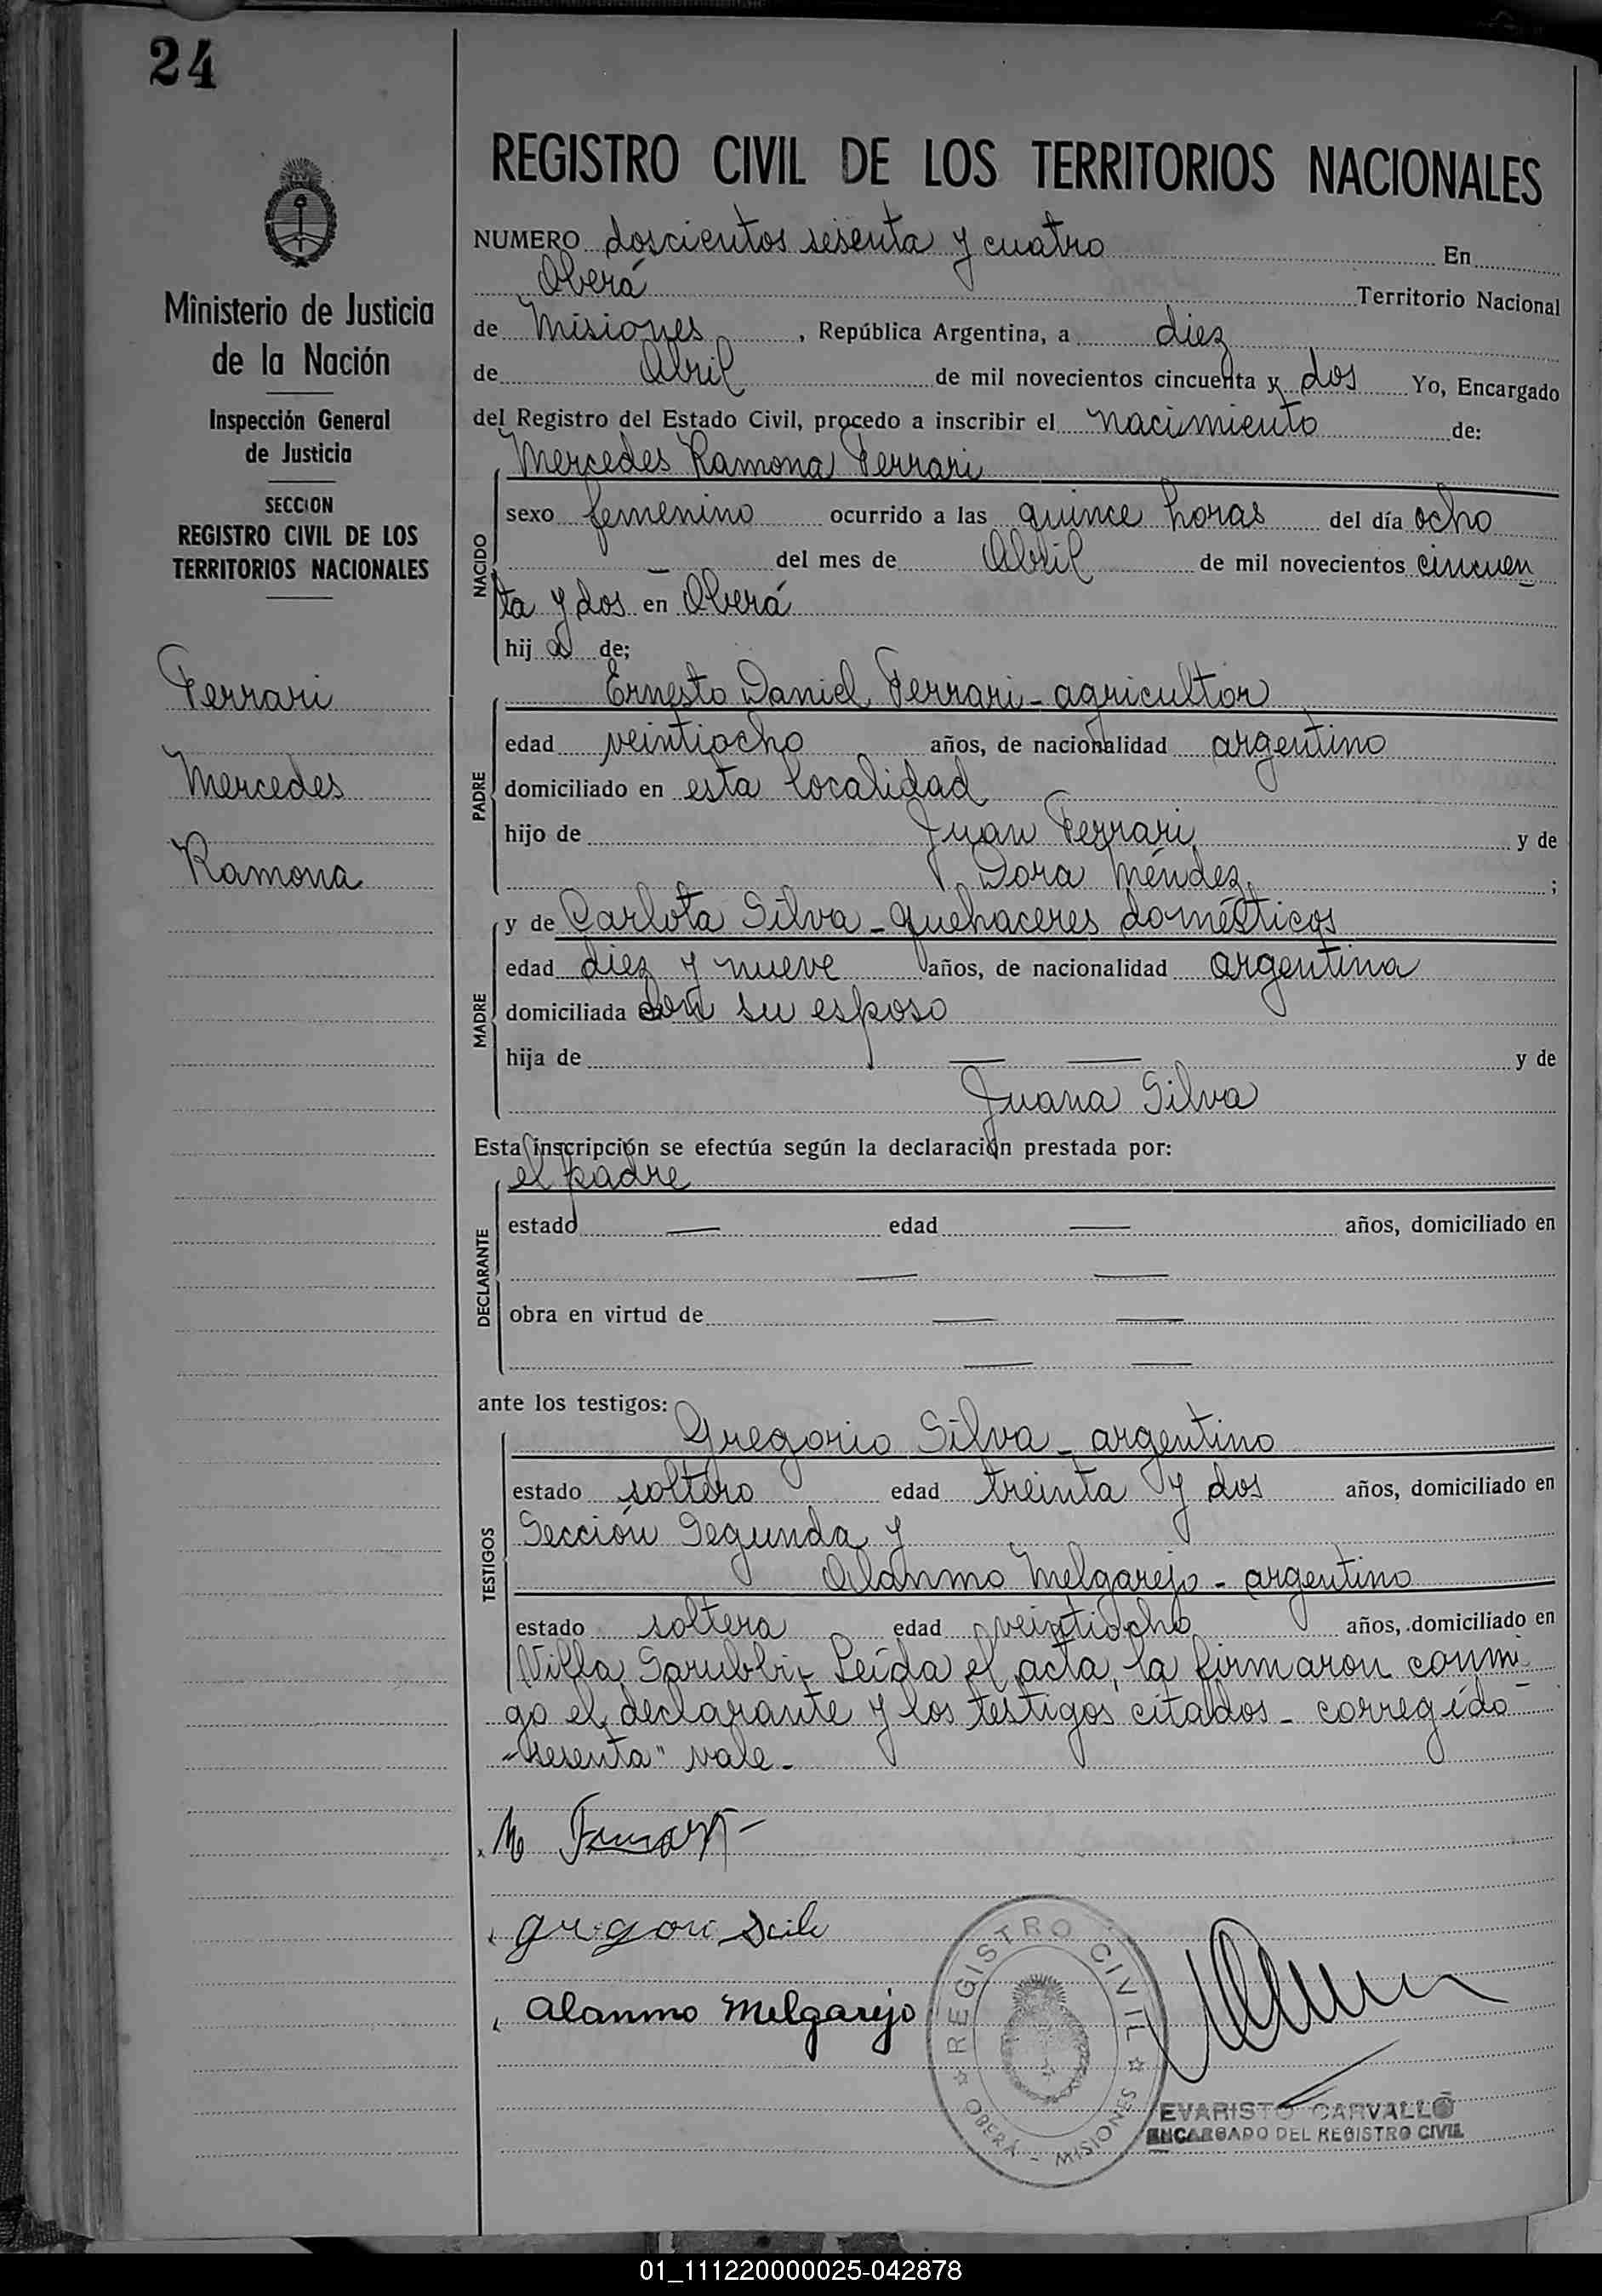 24
REGISTRO CIVIL DE LOS TERRITORIOS NACIONALES
NUMERO doscientos sesenta y cuatro En
Oberá Territorio Nacional
de Misiones, República Argentina, a diez
de Abril de mil novecientos cincuenta y dos Yo, Encargado
del Registro del Estado Civil, procedo a inscribir el nacimiento de:
Mercedes Ramona Ferrari
NACIDO
sexo femenino ocurrido a las quince horas del día ocho
— del mes de Abril de mil novecientos cincuen
ta y dos en Oberá
hij a de;
PADRE
Ernesto Daniel Ferrari - agricultor
edad veintiocho años, de nacionalidad argentino
domiciliado en esta localidad
hijo de Juan Ferrari y de
Dora Méndez ;
MADRE
y de Carlota Silva - quehaceres domésticos
edad diez y nueve años, de nacionalidad argentina
domiciliada con su esposo
hija de — — y de
Juana Silva
Esta inscripción se efectúa según la declaración prestada por:
DECLARANTE
el padre
estado — edad — años, domiciliado en
— —
obra en virtud de — —
— —
ante los testigos:
TESTIGOS
Gregorio Silva - argentino
estado soltero edad treinta y dos años, domiciliado en
Sección Segunda y
Alanmo Melgarejo - argentino
estado soltera edad veintiocho años, domiciliado en
Villa Sarubbi - Leída el acta, la firmaron conmi
go el declarante y los testigos citados - corregido
"sesenta" vale -
Alanmo Melgarejo
REGISTRO CIVIL
OBERÁ - MISIONES
EVARISTO CARVALLO
ENCARGADO DEL REGISTRO CIVIL
Ministerio de Justicia
de la Nación
Inspección General
de Justicia
SECCION
REGISTRO CIVIL DE LOS
TERRITORIOS NACIONALES
Ferrari
Mercedes
Ramona
01_111220000025-042878